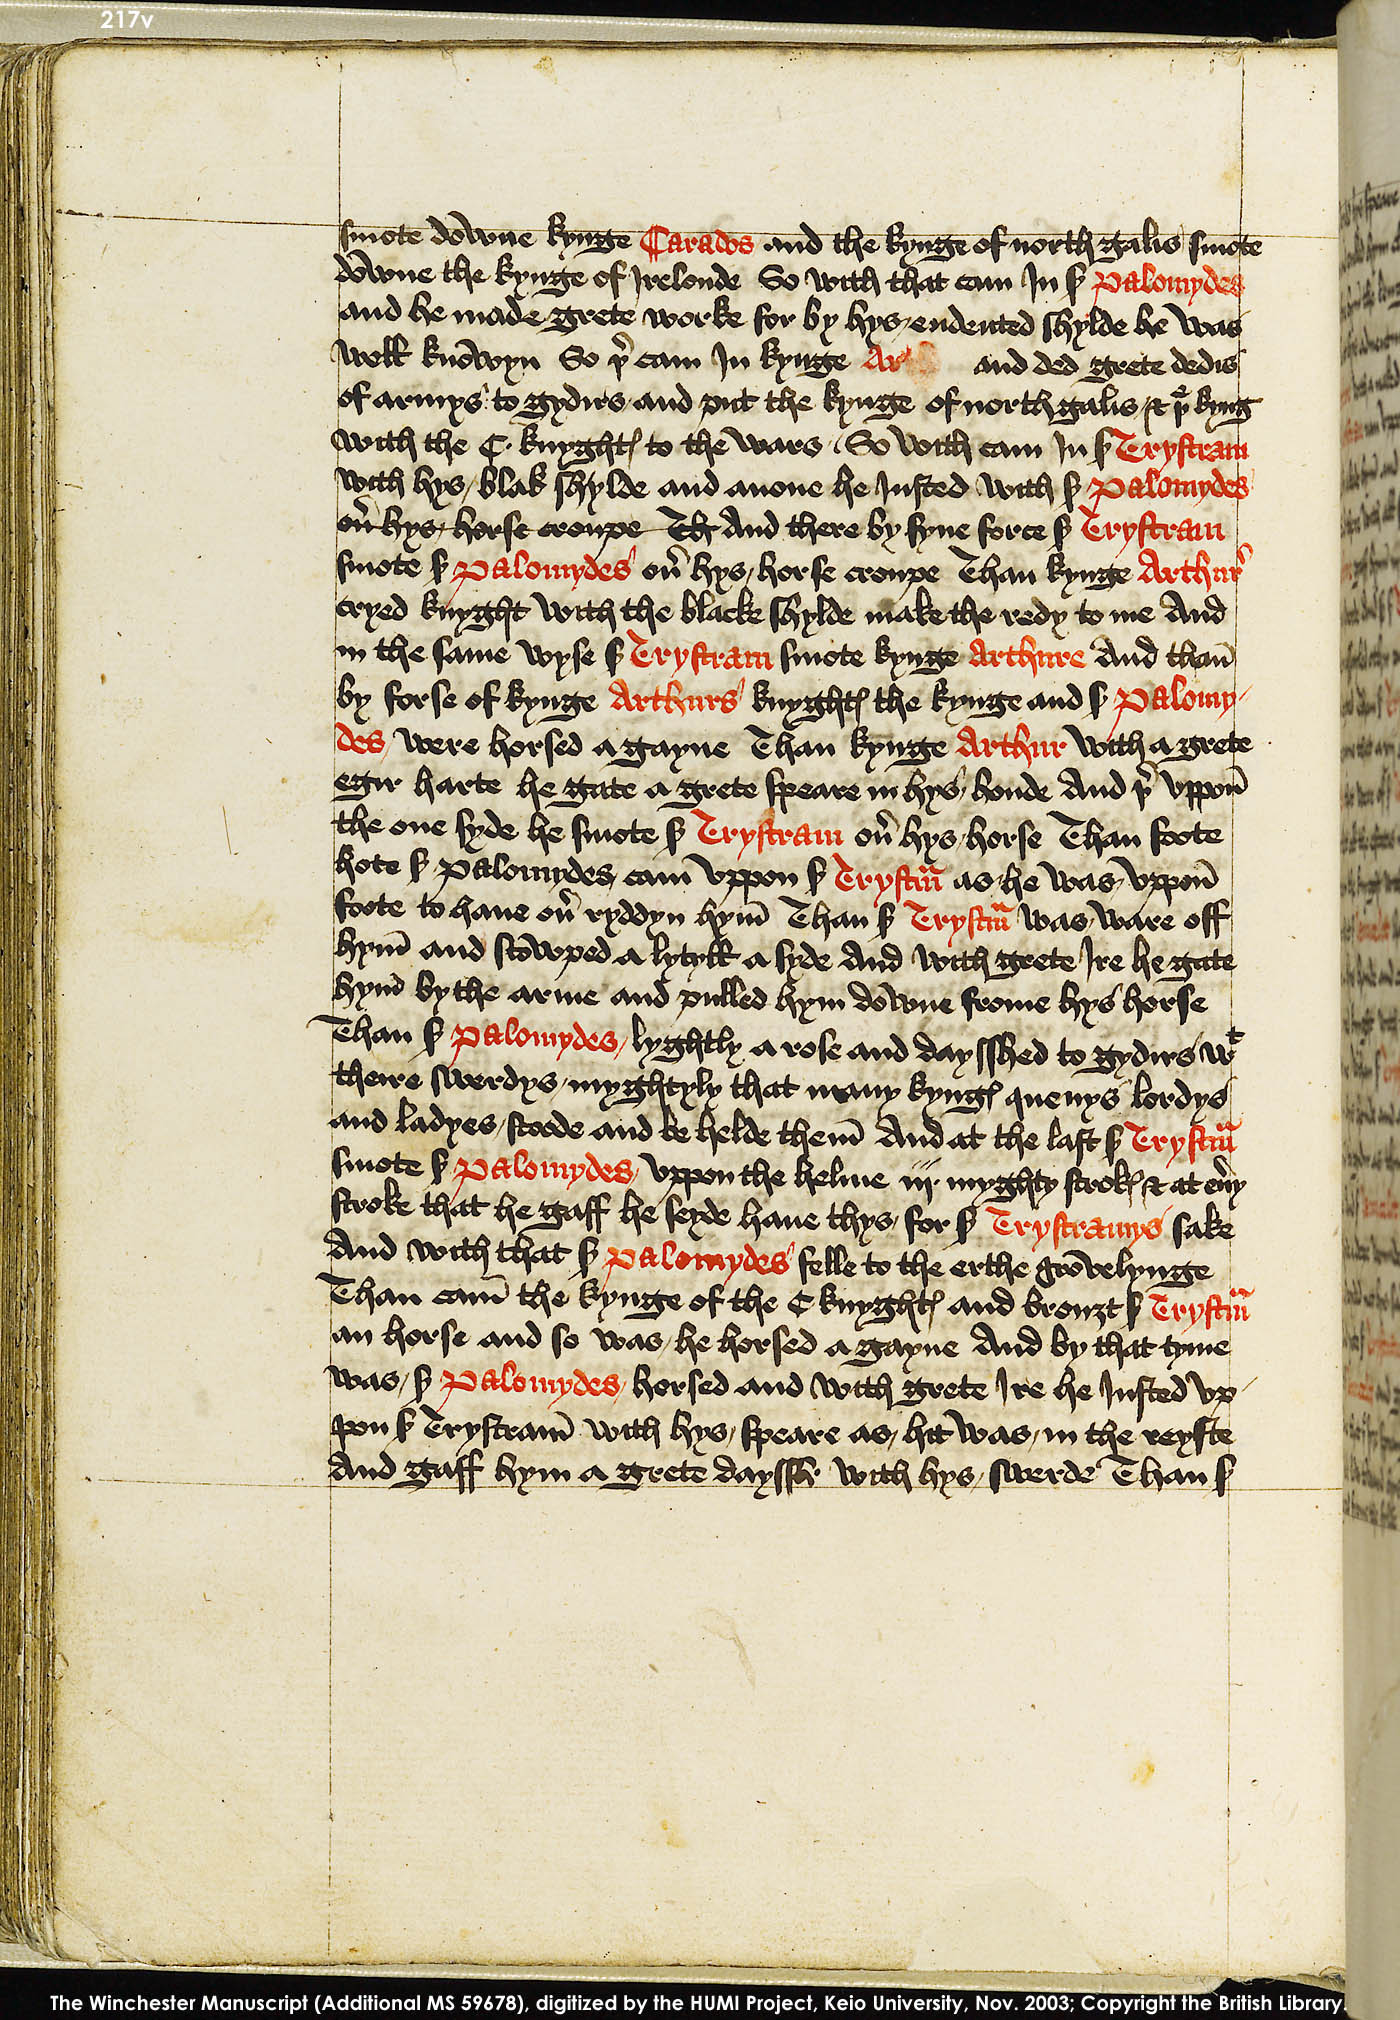 217v
smote downe kynge Carados and the kynge of north galis smote
downe the kynge of Irelonde So with that cam In sʳ Palomydes
and he made grete worke for by hys endented shylde he was
well knowyn So þʳ cam In kynge Ar and ded grete dedis
of armys to gydirs and put the kynge of north galis & þe kyng
with the C. knyghtꝭ to the wars. So with cam In sʳ Trystram
with hys blak shylde and anone he Iusted with sʳ Palomydes
ou̾ hys horse croupe Th And there by fyne force sʳ Trystram
smote sʳ Palomydes ou̾ hys horse croupe Than kynge Arthur̾
cryed knyght with the blacke shylde make the redy to me And
in the same wyse sʳ Trystram smote kynge Arthure And than̄
by forse of kynge Arthurs knyghtꝭ the kynge and sʳ Palomy-
des were horsed a gayne Than kynge Arthur with a grete
egir harte he gate a grete speare in hys honde And þʳ vppon̄
the one syde he smote sʳ Trystram ou̾ hys horse Than foote
hote sʳ Palomydes cam̄ vppon sʳ Trystrā as he was vppon̄
foote to haue ou̾ ryddyn hym̄ Than sʳ Trystrā was ware off
hym̄ and stowped a lytyll a syde And with grete Ire he gate
hym̄ by the arme and pulled hym downe frome hys horse
Than sʳ Palomydes lyghtly a rose and daysshed to gydirs wᵗ
theire swerdys myghtyly that many kyngꝭ quenys lordys
and ladyes stoode and be helde them̄ And at the last sʳ Trystrā
smote sʳ Palomydes vppon the helme iij myghty strokꝭ & at eu̾y
stroke that he gaff he seyde haue thys for sʳ Trystramys sake
And with that sʳ Palomydes felle to the erthe grovelynge
Than cam̄ the kynge of the C knyghtꝭ and brouȝt sʳ Trystrā
an horse and so was he horsed a gayne And by that tyme
was sʳ Palomydes horsed and with grete Ire he Iusted vp-
pon sʳ Trystram̄ with hys speare as hit was in the reyste
And gaff hym a grete dayssh with hys swerde Than sʳ
The Winchester Manuscript (Additional MS 59678), digitized by the HUMI Project, Keio University, Nov. 2003; Copyright the British Library.